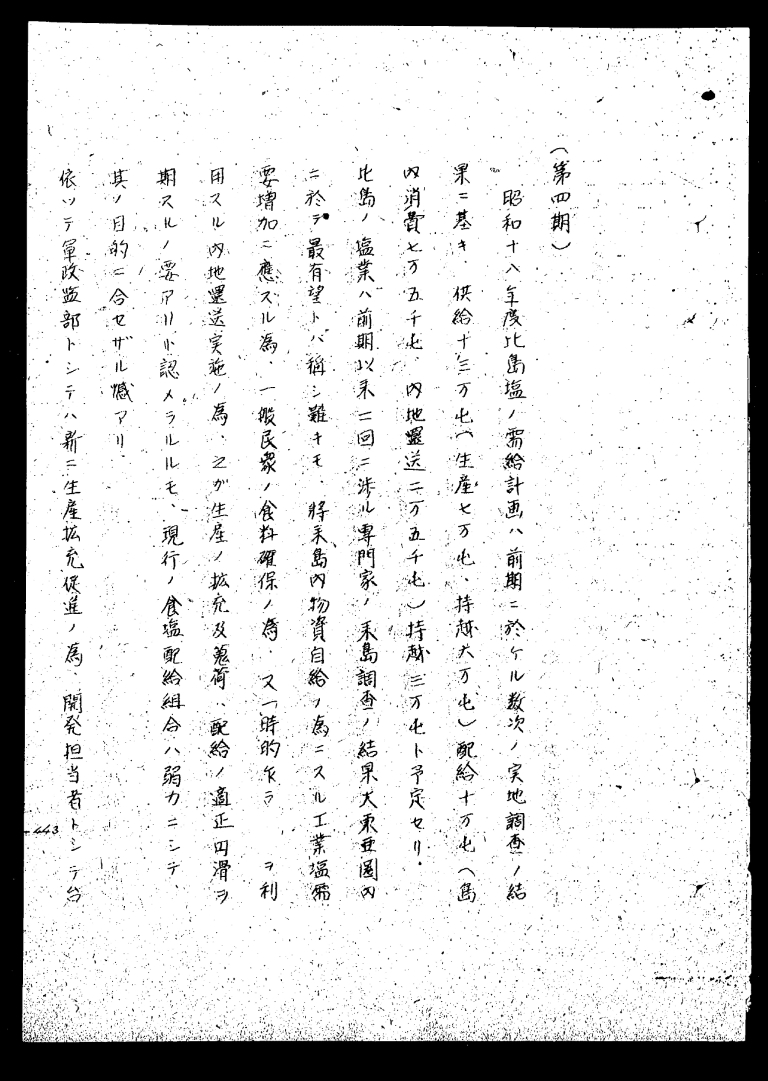 (第四期)
昭和十八年度比島塩ノ需給計画ハ前期ニ於ケル数次ノ実地調査ノ結
果ニ基キ 供給十三万屯(生産七万屯、持越六万屯)配給十万屯(島
内消費七万五千屯、内地還送二万五千屯)持越三万屯ト予定セリ。
比島ノ塩業ハ前期以来二回ニ渉ル専門家ノ来島調査ノ結果大東亜圏内
ニ於テ最有望トハ称シ難キモ、将来島内物資自給ノ為ニスル工業塩需
要増加ニ應ズル為、一般民衆ノ食料確保ノ為、又一時的乍ラ ヲ利
用スル内地還送実施ノ為、之ガ生産ノ拡充及蒐荷、配給ノ適正円滑ヲ
期スルノ要アリト認メラルルモ、現行ノ食塩配給組合ハ弱力ニシテ、
其ノ目的ニ合セザル憾アリ
依ッテ軍政監部トシテハ新ニ生産拡充促進ノ為、開発担当者トシテ台
443